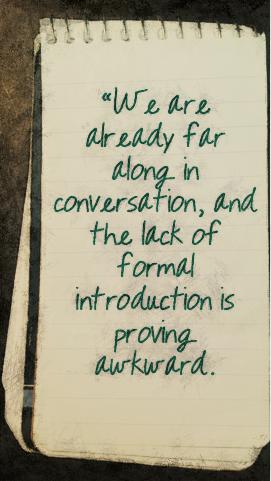 “We are
already far
along in
conversation, and
the lack of
formal
introduction is
proving
awkward.